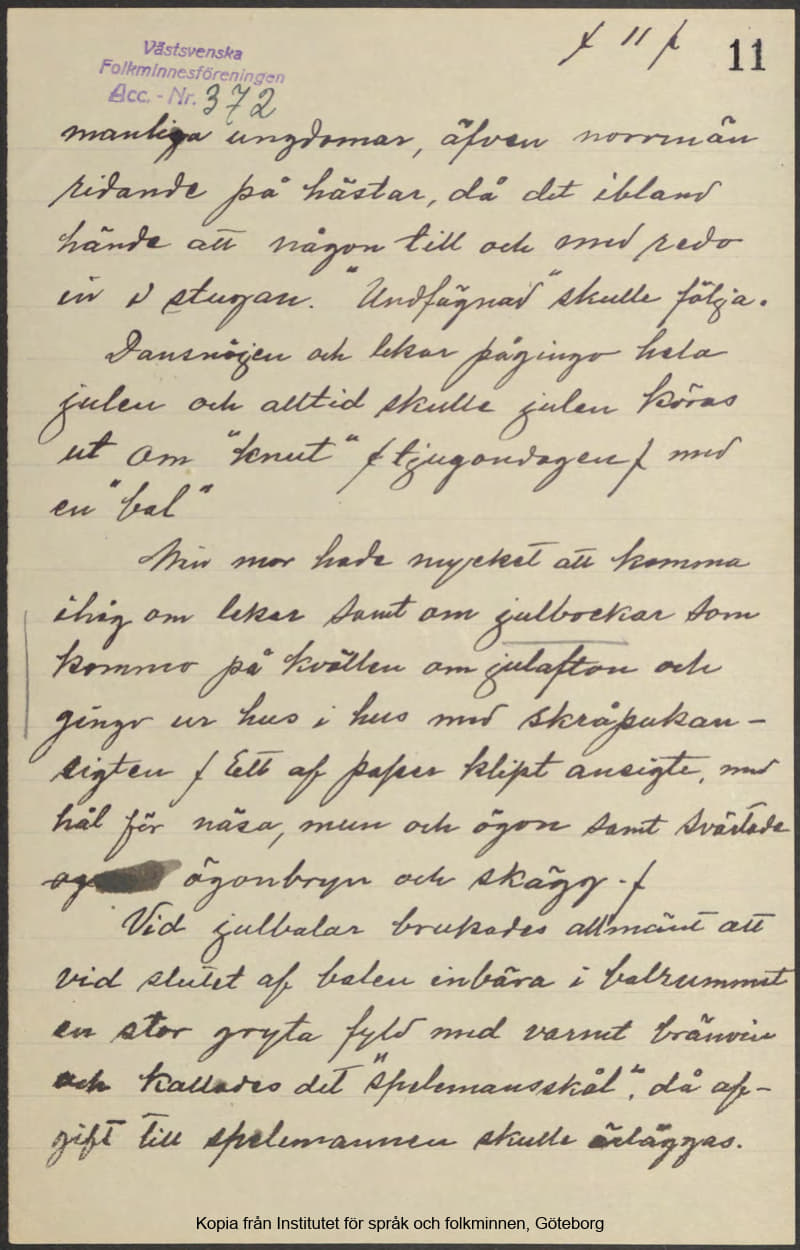 Västsvenska
Folkminnesföreningen
Acc. - Nr. 372
/ 11 /
11
manliga ungdomar, äfven norrmän
ridande på hästar, då det ibland
hände att någon till och med redo
in i stugan. "Undfägnad" skulle följa.
Dansnöjen och lekar pågingo hela
julen och alltid skulle julen köras
ut om "knut" / tjugondagen / med
en "bal"
Min mor hade mycket att komma
ihåg om lekar samt om julbockar som
kommo på kvällen om julafton och
gingo ur hus i hus med skråpukan-
sigten / Ett af papper klipt ansigte, med
hål för näsa, mun och ögon samt svärtade
ögonbryn och skägg. /
Vid julbalar brukades allmänt att
vid slutet af balen inbära i balrummet
en stor gryta fyld med varmt bränvin
och kallades det "spelemansskål", då af-
gift till spelemannen skulle erläggas.
Kopia från Institutet för språk och folkminnen, Göteborg